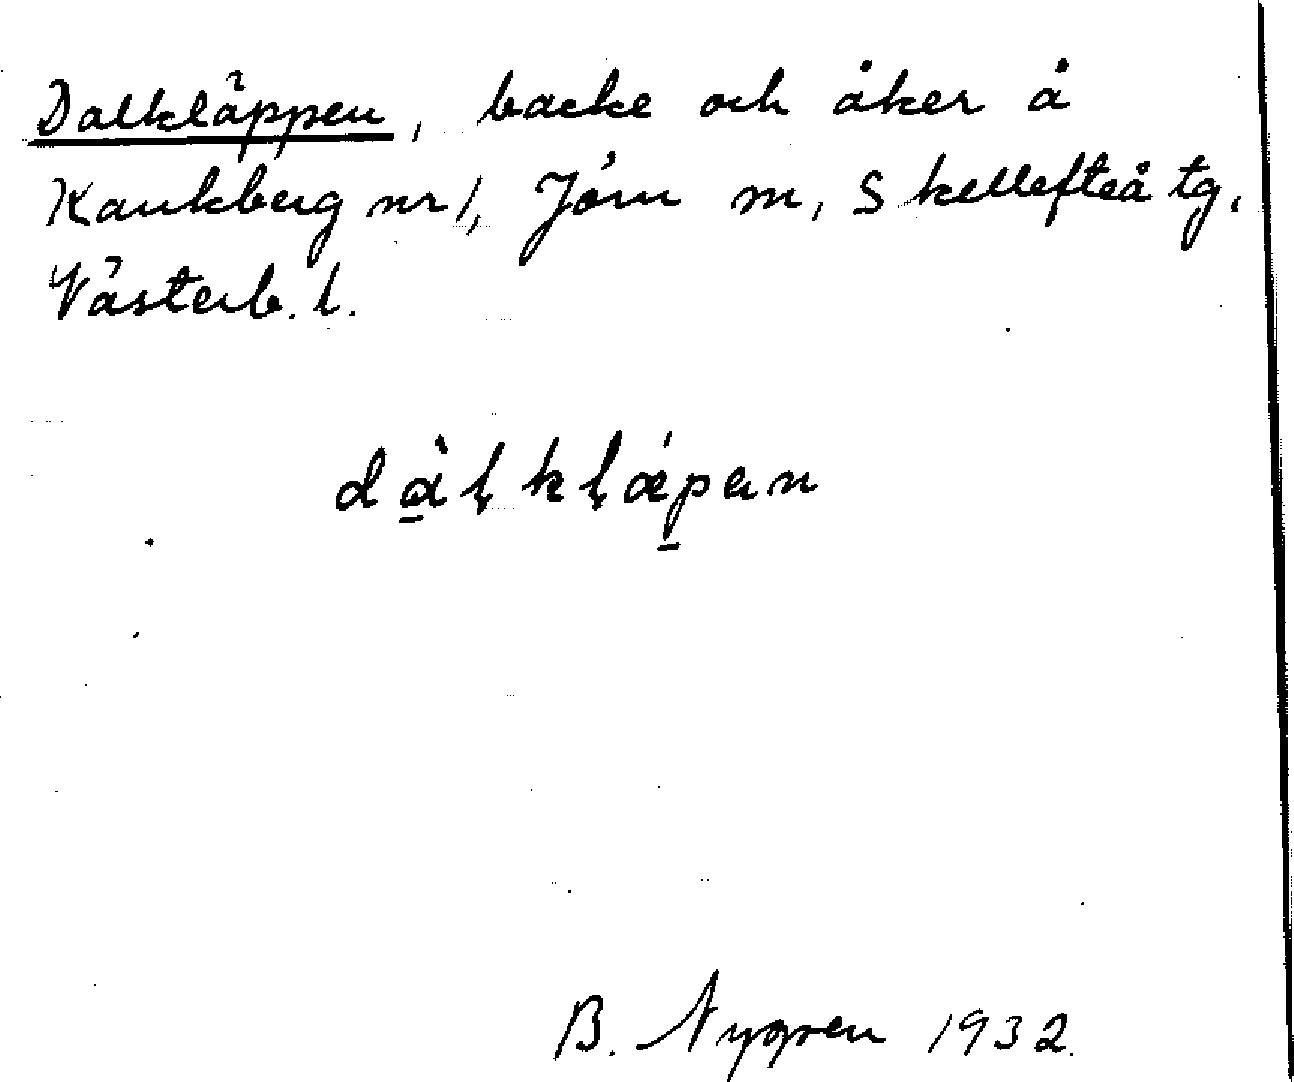 Dalkläppen, backe och åker å
Kankberg nr 1, Jörn sn, Skellefteå tg,
Västerb. l.
dàḷkḷǽpan
B. Nygren 1932.